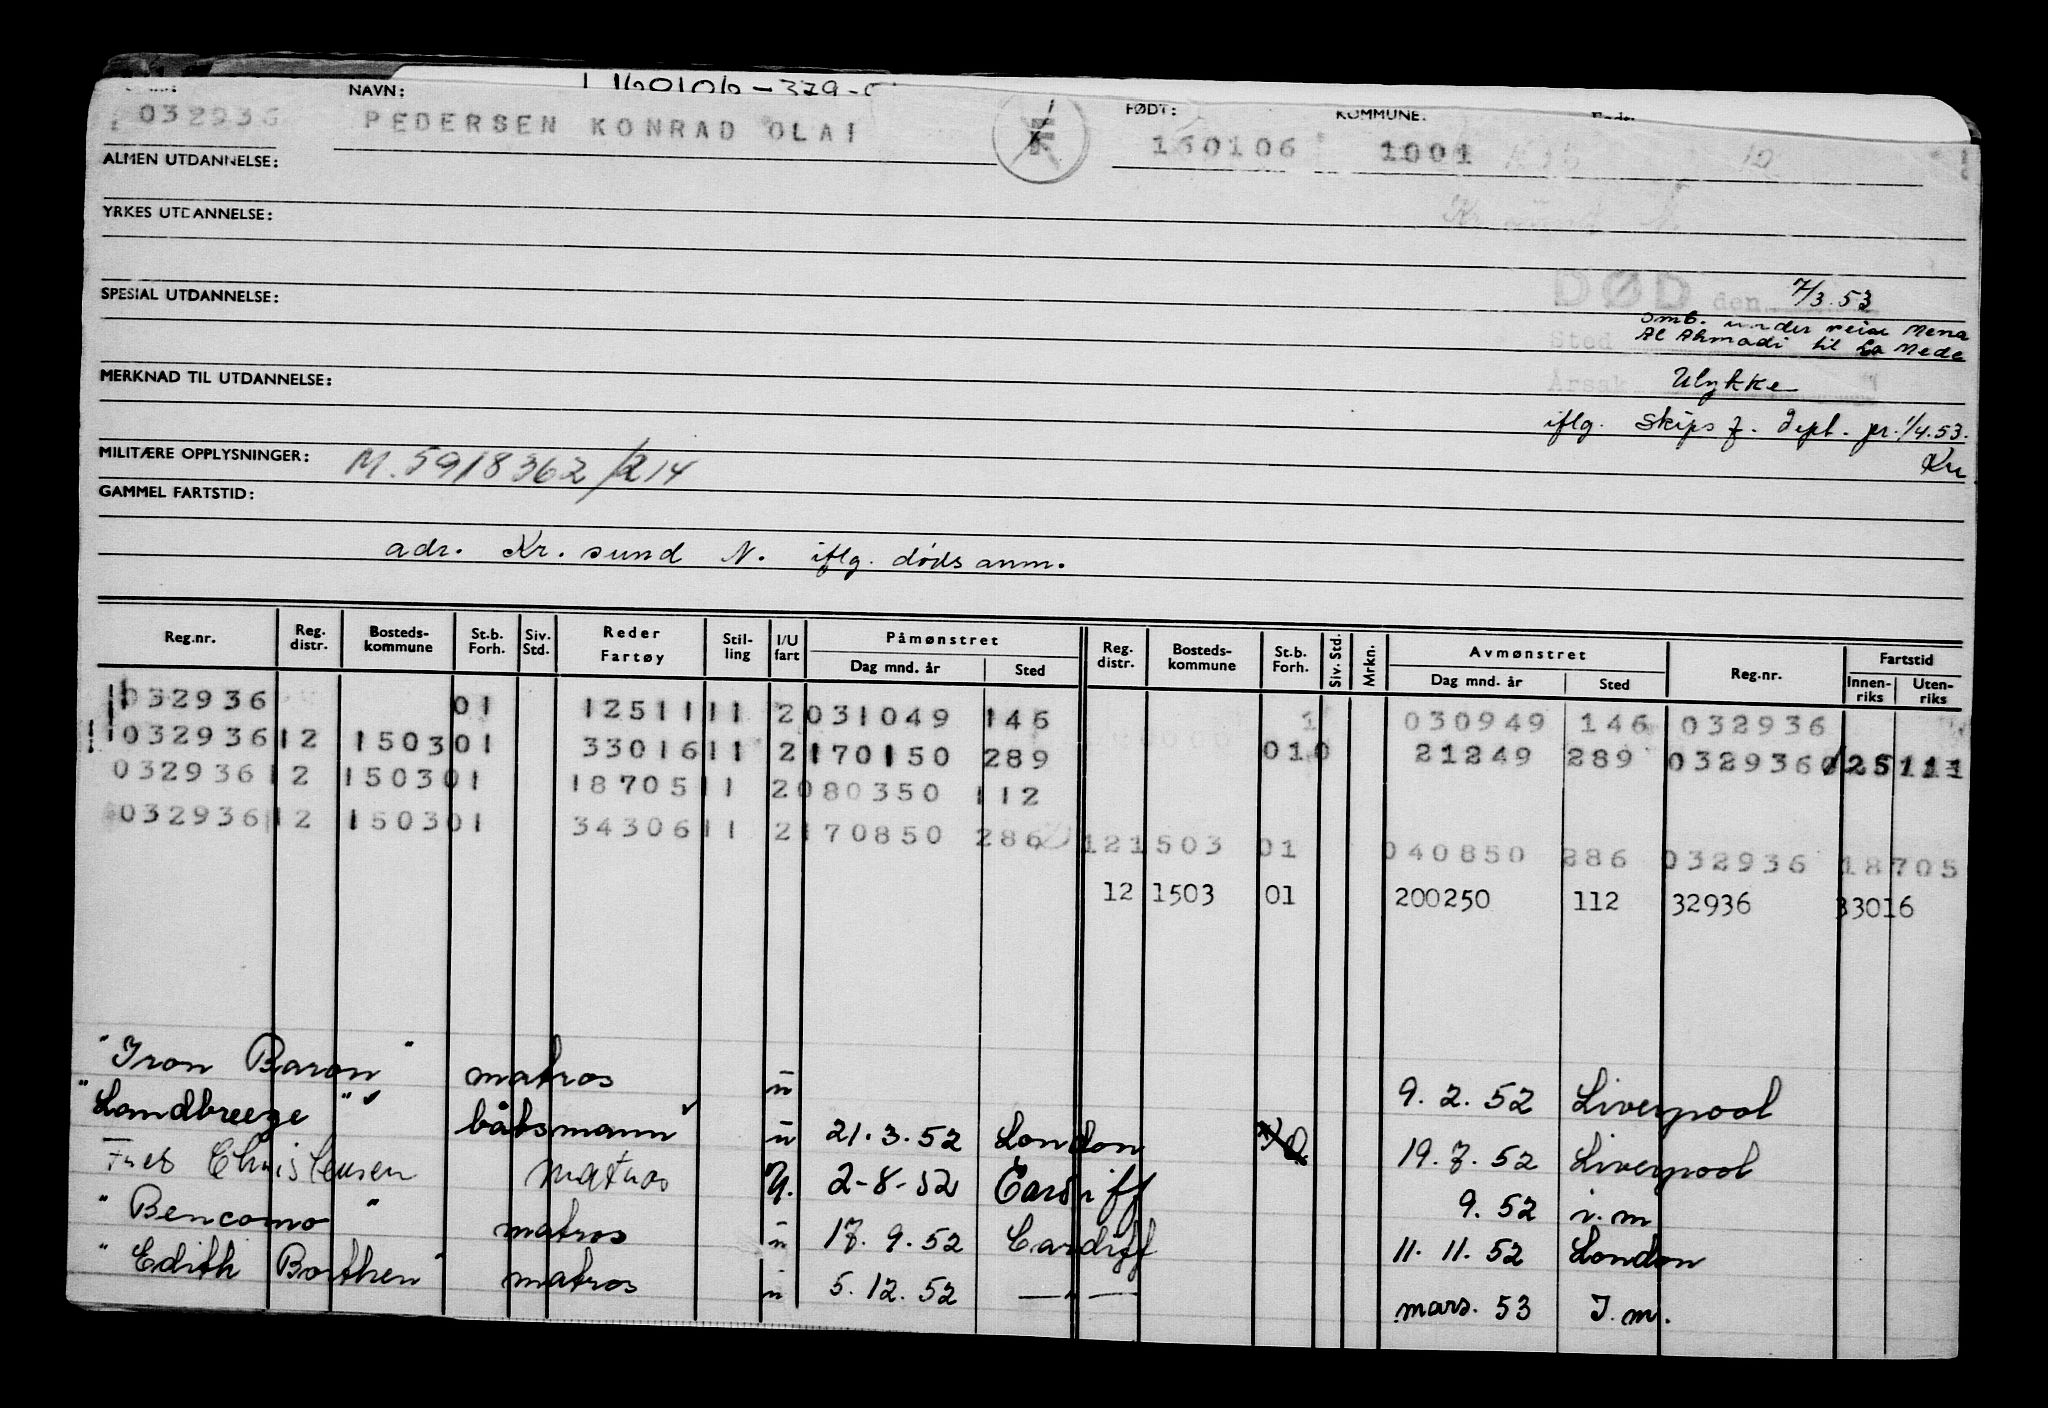 NAVN:
FØDT:
KOMMUNE:
032936 PEDERSEN KONRAD OLAI 160106 1001
ALMEN UTDANNELSE:
YRKES UTDANNELSE:
Kr. sund N.
SPESIAL UTDANNELSE:
DØD den 7/3.53
Sted omb. under reise Mena
Al Ahmadi til La Mede
MERKNAD TIL UTDANNELSE:
Årsak Ulykke
iflg. Skips f. dept. pr. 1/4.53.
Kr
MILITÆRE OPPLYSNINGER: M. 5918362/214
GAMMEL FARTSTID:
adr. Kr. sund N. iflg. dødsanm.
Reg.nr. Reg. distr. Bosteds-kommune St.b. Forh. Siv. Std. Reder Fartøy Stil-ling I/U fart Påmønstret Dag mnd. år Sted Reg. distr. Bosteds-kommune St.b. Forh. Siv. Std. Mrkn. Avmønstret Dag mnd. år Sted Reg.nr. Fartstid Innen-riks Uten-riks
032936 01 12511 11 2 031049 146 1 030949 146 032936
032936 12 1503 01 33016 11 2 170150 289 010 21249 289 032936 025111
032936 12 1503 01 18705 11 2 080350 112
032936 12 1503 01 34306 11 2 170850 286 12 1503 01 040850 286 032936 18705
12 1503 01 200250 112 32936 33016
"Iron Baron" matros u 9. 2. 52 Liverpool
"Landbreeze" båtsmann u 21. 3. 52 London 19. 7. 52 Liverpool
Fred Christensen Matros U. 2-8-52 Cardiff 9. 52 i. m
"Bencomo" matros u 17. 9. 52 Cardiff 11. 11. 52 London
"Edith Borthen" matros u 5. 12. 52 — " — mars. 53 I. m.